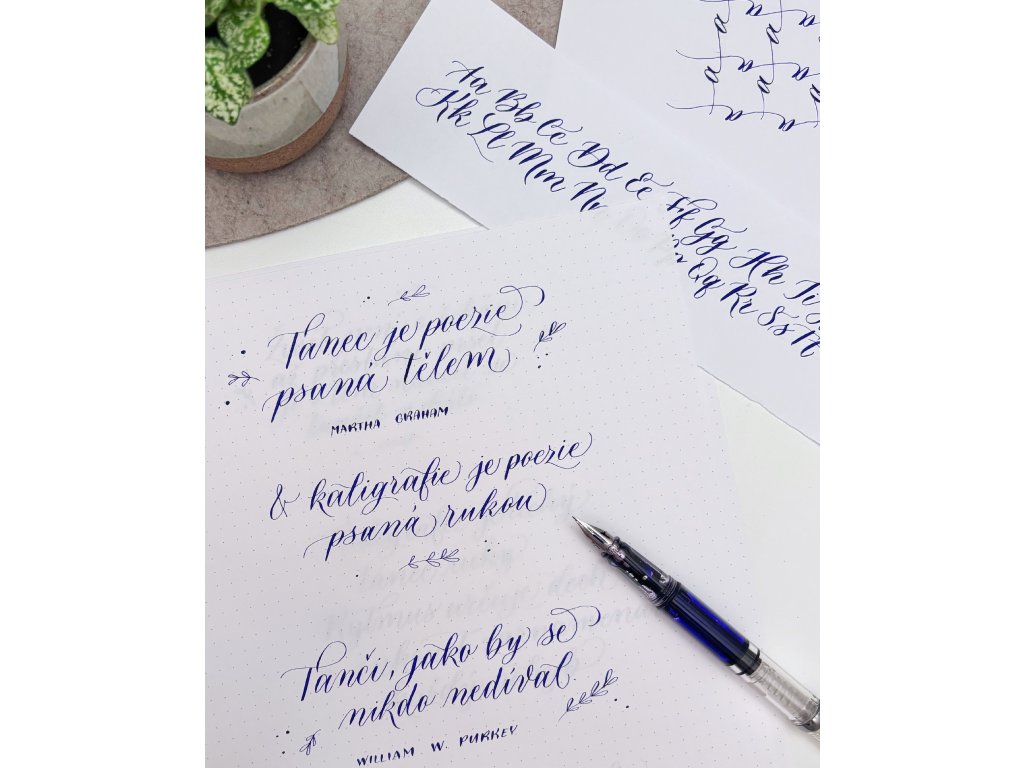 Aa Bb Cc Dd Ee Ff Gg Hh Ii
Kk Ll Mm Nn Qq Rr Ss Tt
a a a
a a a
a a a
a a a
Tanec je poezie
psaná tělem
MARTHA GRAHAM
& kaligrafie je poezie
psaná rukou
Tanči, jako by se
nikdo nedíval
WILLIAM W. PURKEY